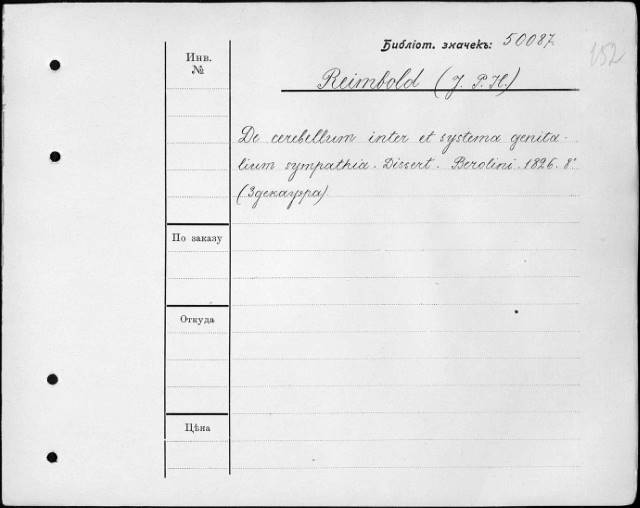 Библіот. значекъ: 50087.
152
Инв. №
Reimbold (J. P. H.)
De cerebellum inter et systema genita-
lium sympathia. Dissert. Berolini. 1826. 8°
(3 декаурра)
По заказу
Откуда
Цѣна